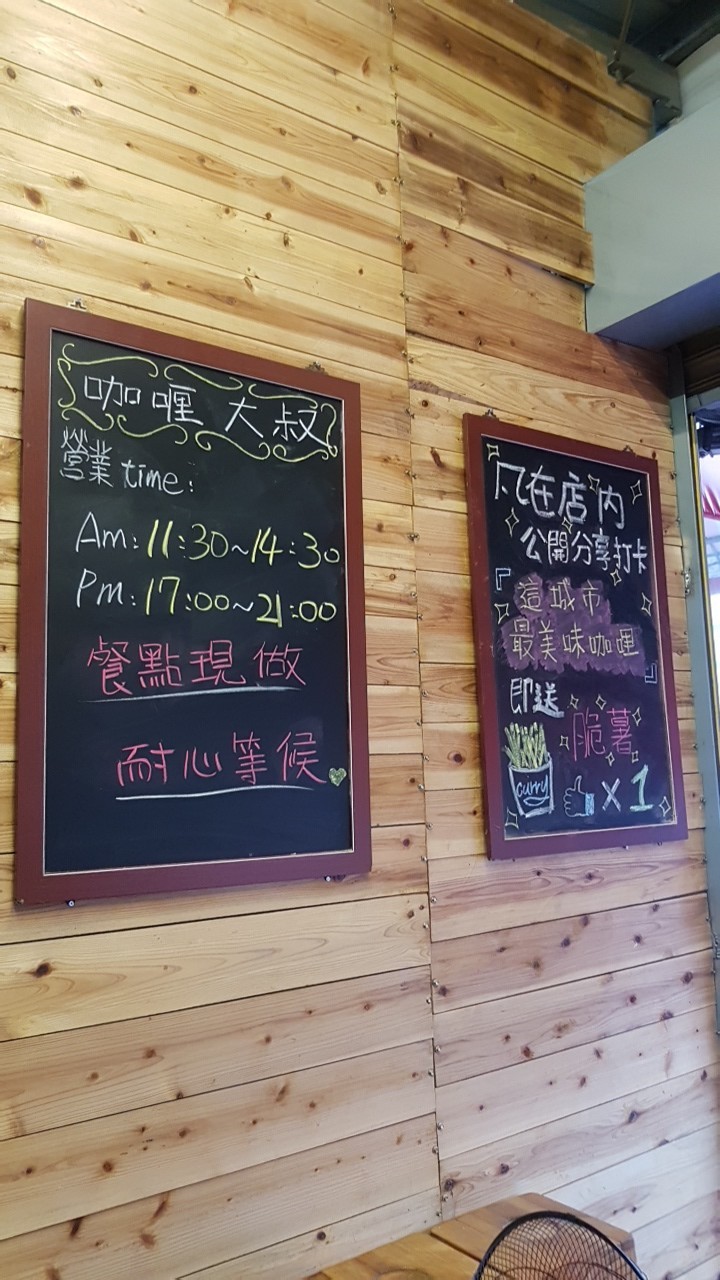 咖喱大叔
營業time:
Am:11:30~14:30
Pm:17:00~21:00
餐點現做
耐心等候
凡在店內
公開分享打卡
『這城市
最美味咖哩』
即送
脆薯
curry
x1